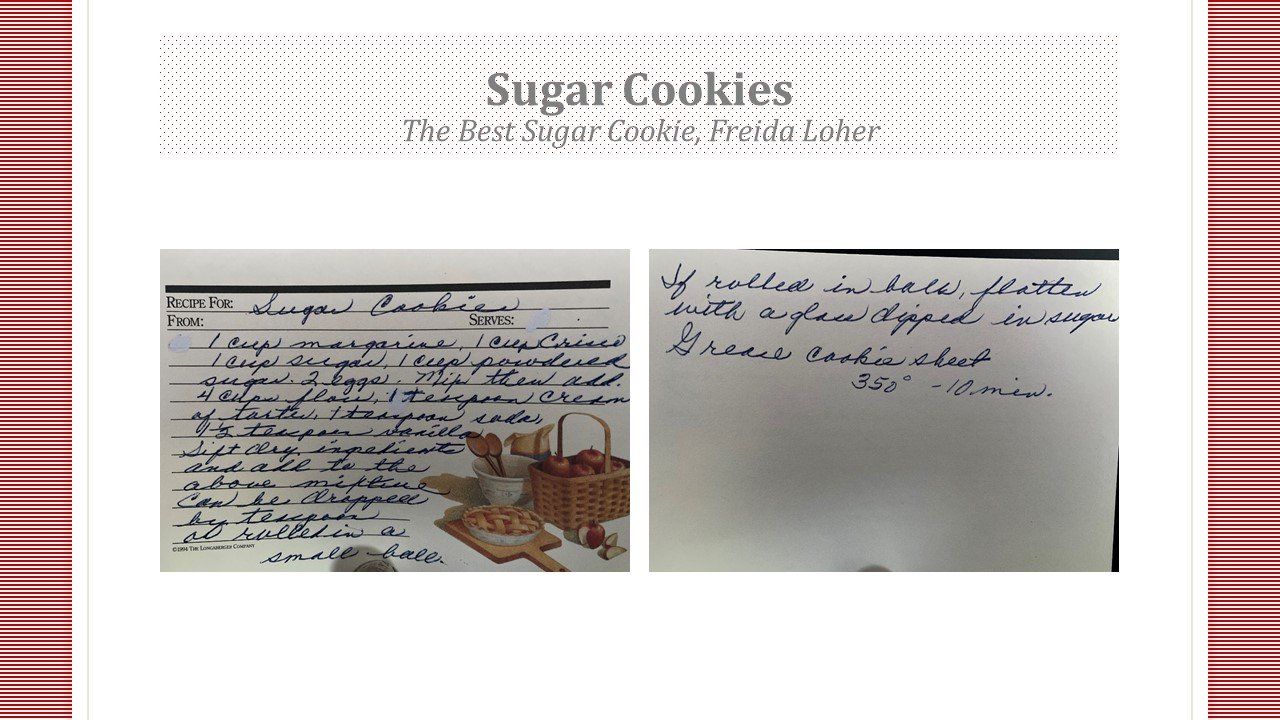 Sugar Cookies
The Best Sugar Cookie, Freida Loher
RECIPE FOR: Sugar Cookies
FROM: SERVES:
1 cup margarine, 1 cup Crisco
1 cup sugar, 1 cup powdered
sugar. 2 eggs. Mix then add.
4 cups flour, 1 teaspoon cream
of tarter, 1 teaspoon soda,
teaspoon vanilla
Sift dry ingredients
and add to the
above mixture
can be dropped
by teaspoon
or rolled in a
©1994 THE LONGABERGER COMPANY
small ball.
If rolled in balls, flatten
with a glass dipped in sugar
Grease cookie sheet
350° - 10 min.